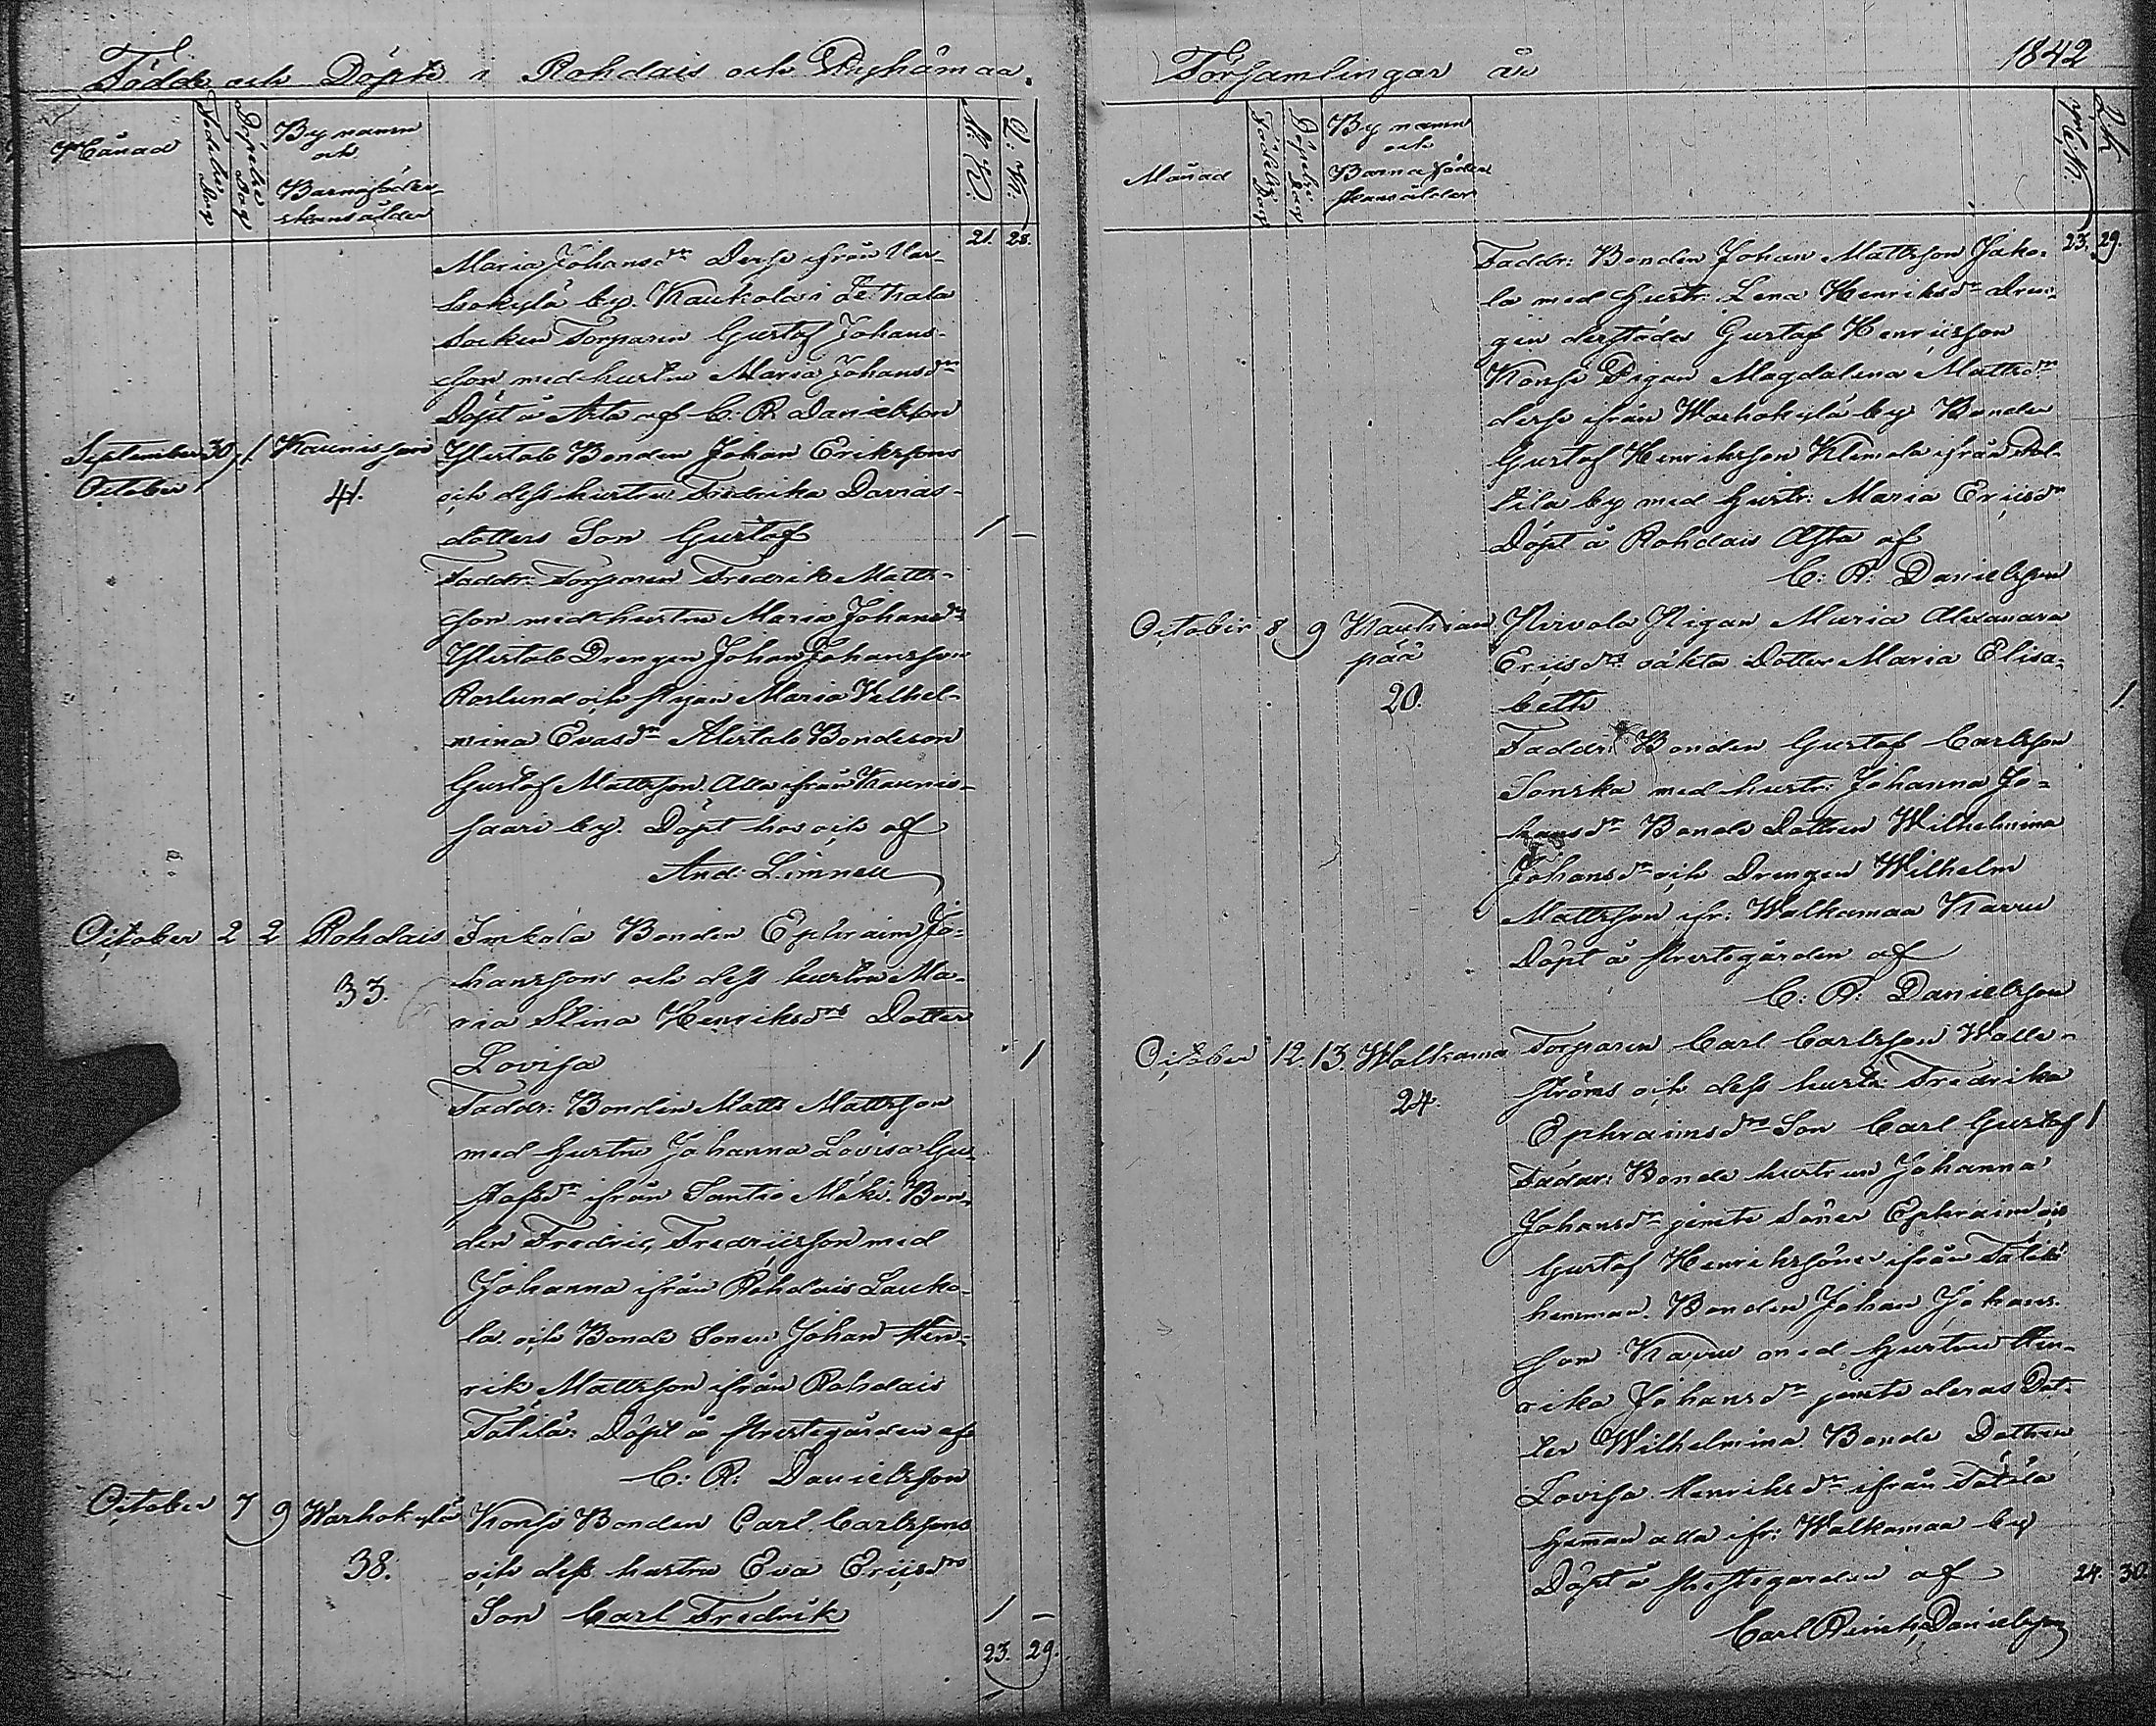 Födde och Döpte i Rohdais och Pyhämaa
Månad
Födelse Dag
Döpelse Dag
By namn
och
Barnaföder-
skans ålder
M. K.
Q. K.
21. 28.
Maria Johansdr Derse ifrån Var-
hokylä by. Kaukola i Letala
Socken Torparen Gustaf Johans-
son med hustru Maria Johansdr
Döpt å Akta af C. R. Danielsson
September 30 1 Kaunissari
October
41.
Ylistalo Bonden Johan Erikssons
och dess hustru Fredrika Davids-
dotters Son Gustaf 1 –
Faddr: Torparen Fredrik Matts-
son med hustru Maria Johansdr
Ylistalo Drengen Johan Johansson
Roslund och Pigan Maria Vilhel-
mina Evasdr Alistalo Bondeson
Gustaf Mattsson Alla ifrån Kaunis-
saari by. Döpt hos och af
And: Limnell
October 2 2 Rohdais
33.
Inkola Bonden Ephraim Jo-
hanssons och dess hustru Ma-
ria Stina Henriksdrs Dotter
Lovisa 1
Faddr: Bonden Matts Mattsson
med hustru Johanna Lovisa Gu-
stafsdr ifrån Santio Mäki. Bon-
den Fredric Fredricsson med
Johanna ifrån Rohdais Lauko-
la och Bonde Sonen Johan Hen-
rik Mattsson ifrån Rohdais
Tätilä. Döpt å Prestegården af
C: R: Danielsson
October 7 9 Warhokylä
38.
Konsi Bonden Carl Carlssons
och dess hustru Eva Ericsdrs
Son Carl Fredrik 1 –
23. 29.
Församlingar år 1842
Månad
Födelse Dag
Döpelse Dag
By namn
och
Barnaföder
skans ålder
M. K.
Q. K.
23. 29.
Faddr: Bonden Johan Mattsson Jako-
la med hustr: Lena Henriksdr Dren-
gen derstädes Gustaf Henricsson
Konsi Pigan Magdalena Mattsdr
derse ifrån Warhokylä by Bonden
Gustaf Henriksson Klemola ifrån
tila by med hustr: Maria Ericsdr
Döpt å Rohdais Akta af
C: R: Danielsson
October 8 9 Kauhian
pää
20.
Hirvola Pigan Maria Alexandra
Ericsdrs oäkta Dotter Maria Elisa-
beth 1
Faddr: Bonden Gustaf Carlsson
Sonska med hustr: Johanna Jo-
hansdr Bonde Dottren Wilhelmina
Johansdr och Drengen Wilhelm
Mattsson ifr: Walkamaa Karru
Döpt å Prestegården af
C: R: Danielsson
October 12. 13. Walkama
24.
Torparen Carl Carlsson Walle-
ströms och dess hustr: Fredrika
Ephraimsdrs Son Carl Gustaf 1
Faddr: Bonde hustrun Johanna
Johansdr jemte Söner Ephraim och
Gustaf Henrikssöner ifrån Tätilä
hemman. Bonden Johan Johans-
son Karru med hustru Hen-
rika Johansdr jemte deras Dot-
ter Wilhelmina. Bonde Dottren
Lovisa Henriksdr ifrån Tätila
Heman alla ifr: Walkamaa by
Döpt å Prestegården af 24. 30
Carl Reinh. Danielsson